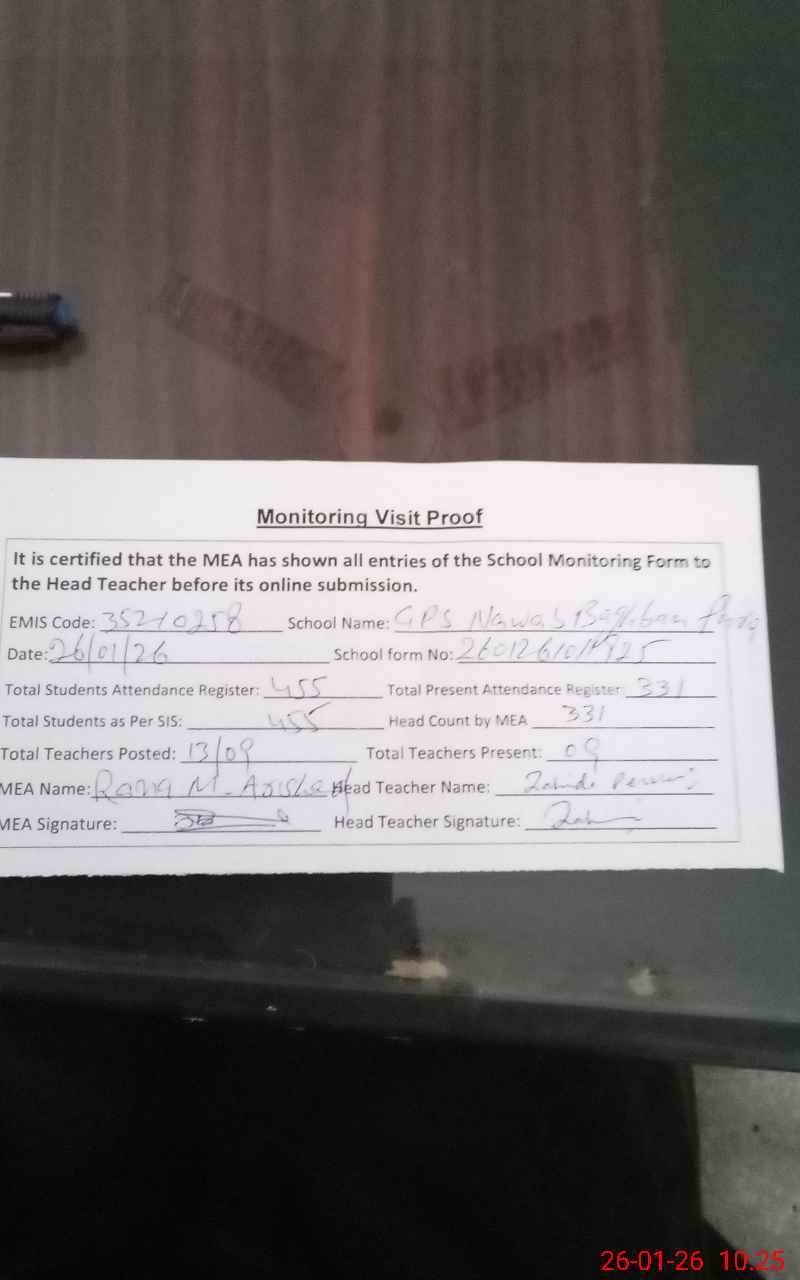 Monitoring Visit Proof
It is certified that the MEA has shown all entries of the School Monitoring Form to
the Head Teacher before its online submission.
EMIS Code: 35210258 School Name: GPS Nawab
Date: 26/01/26 School form No:
Total Students Attendance Register: 455 Total Present Attendance Register 331
Total Students as Per SIS: 455 Head Count by MEA 331
Total Teachers Posted: 13/09 Total Teachers Present: 09
MEA Name: Rana M. Head Teacher Name:
MEA Signature: Head Teacher Signature:
26-01-26 10:25